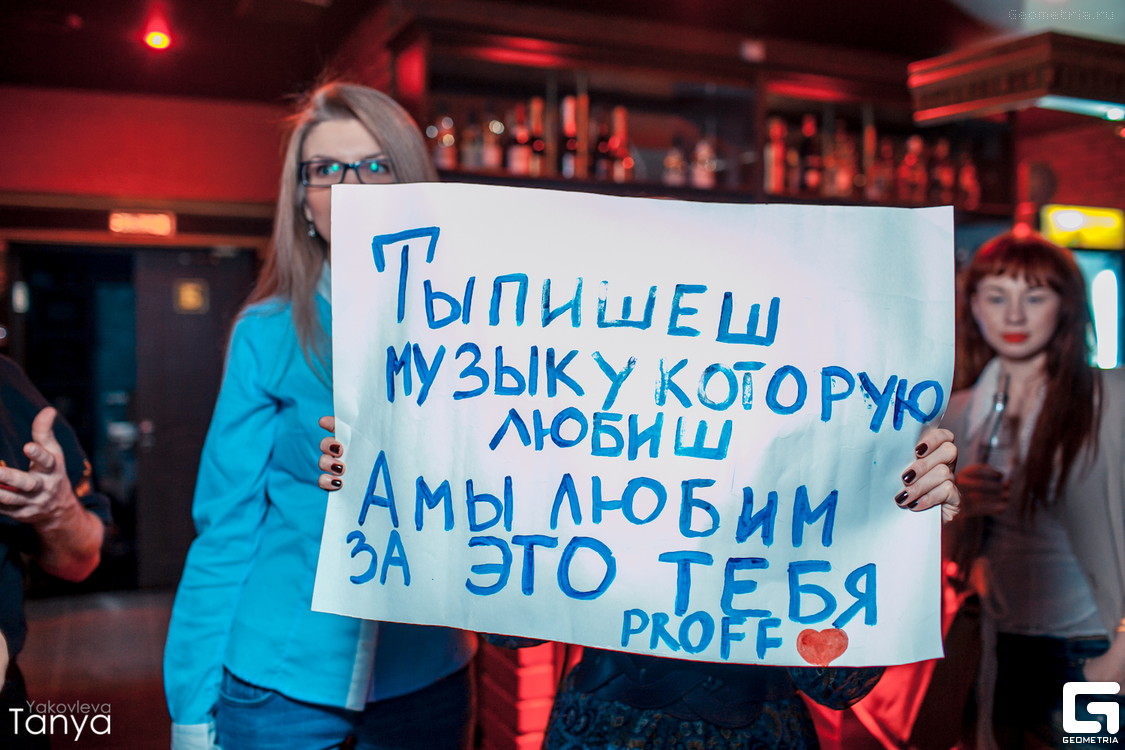 Geometria.ru
Ты пишеш
музыку которую
любиш
А мы любим
за это тебя
PROFF
Yakovleva
Tanya
GEOMETRIA